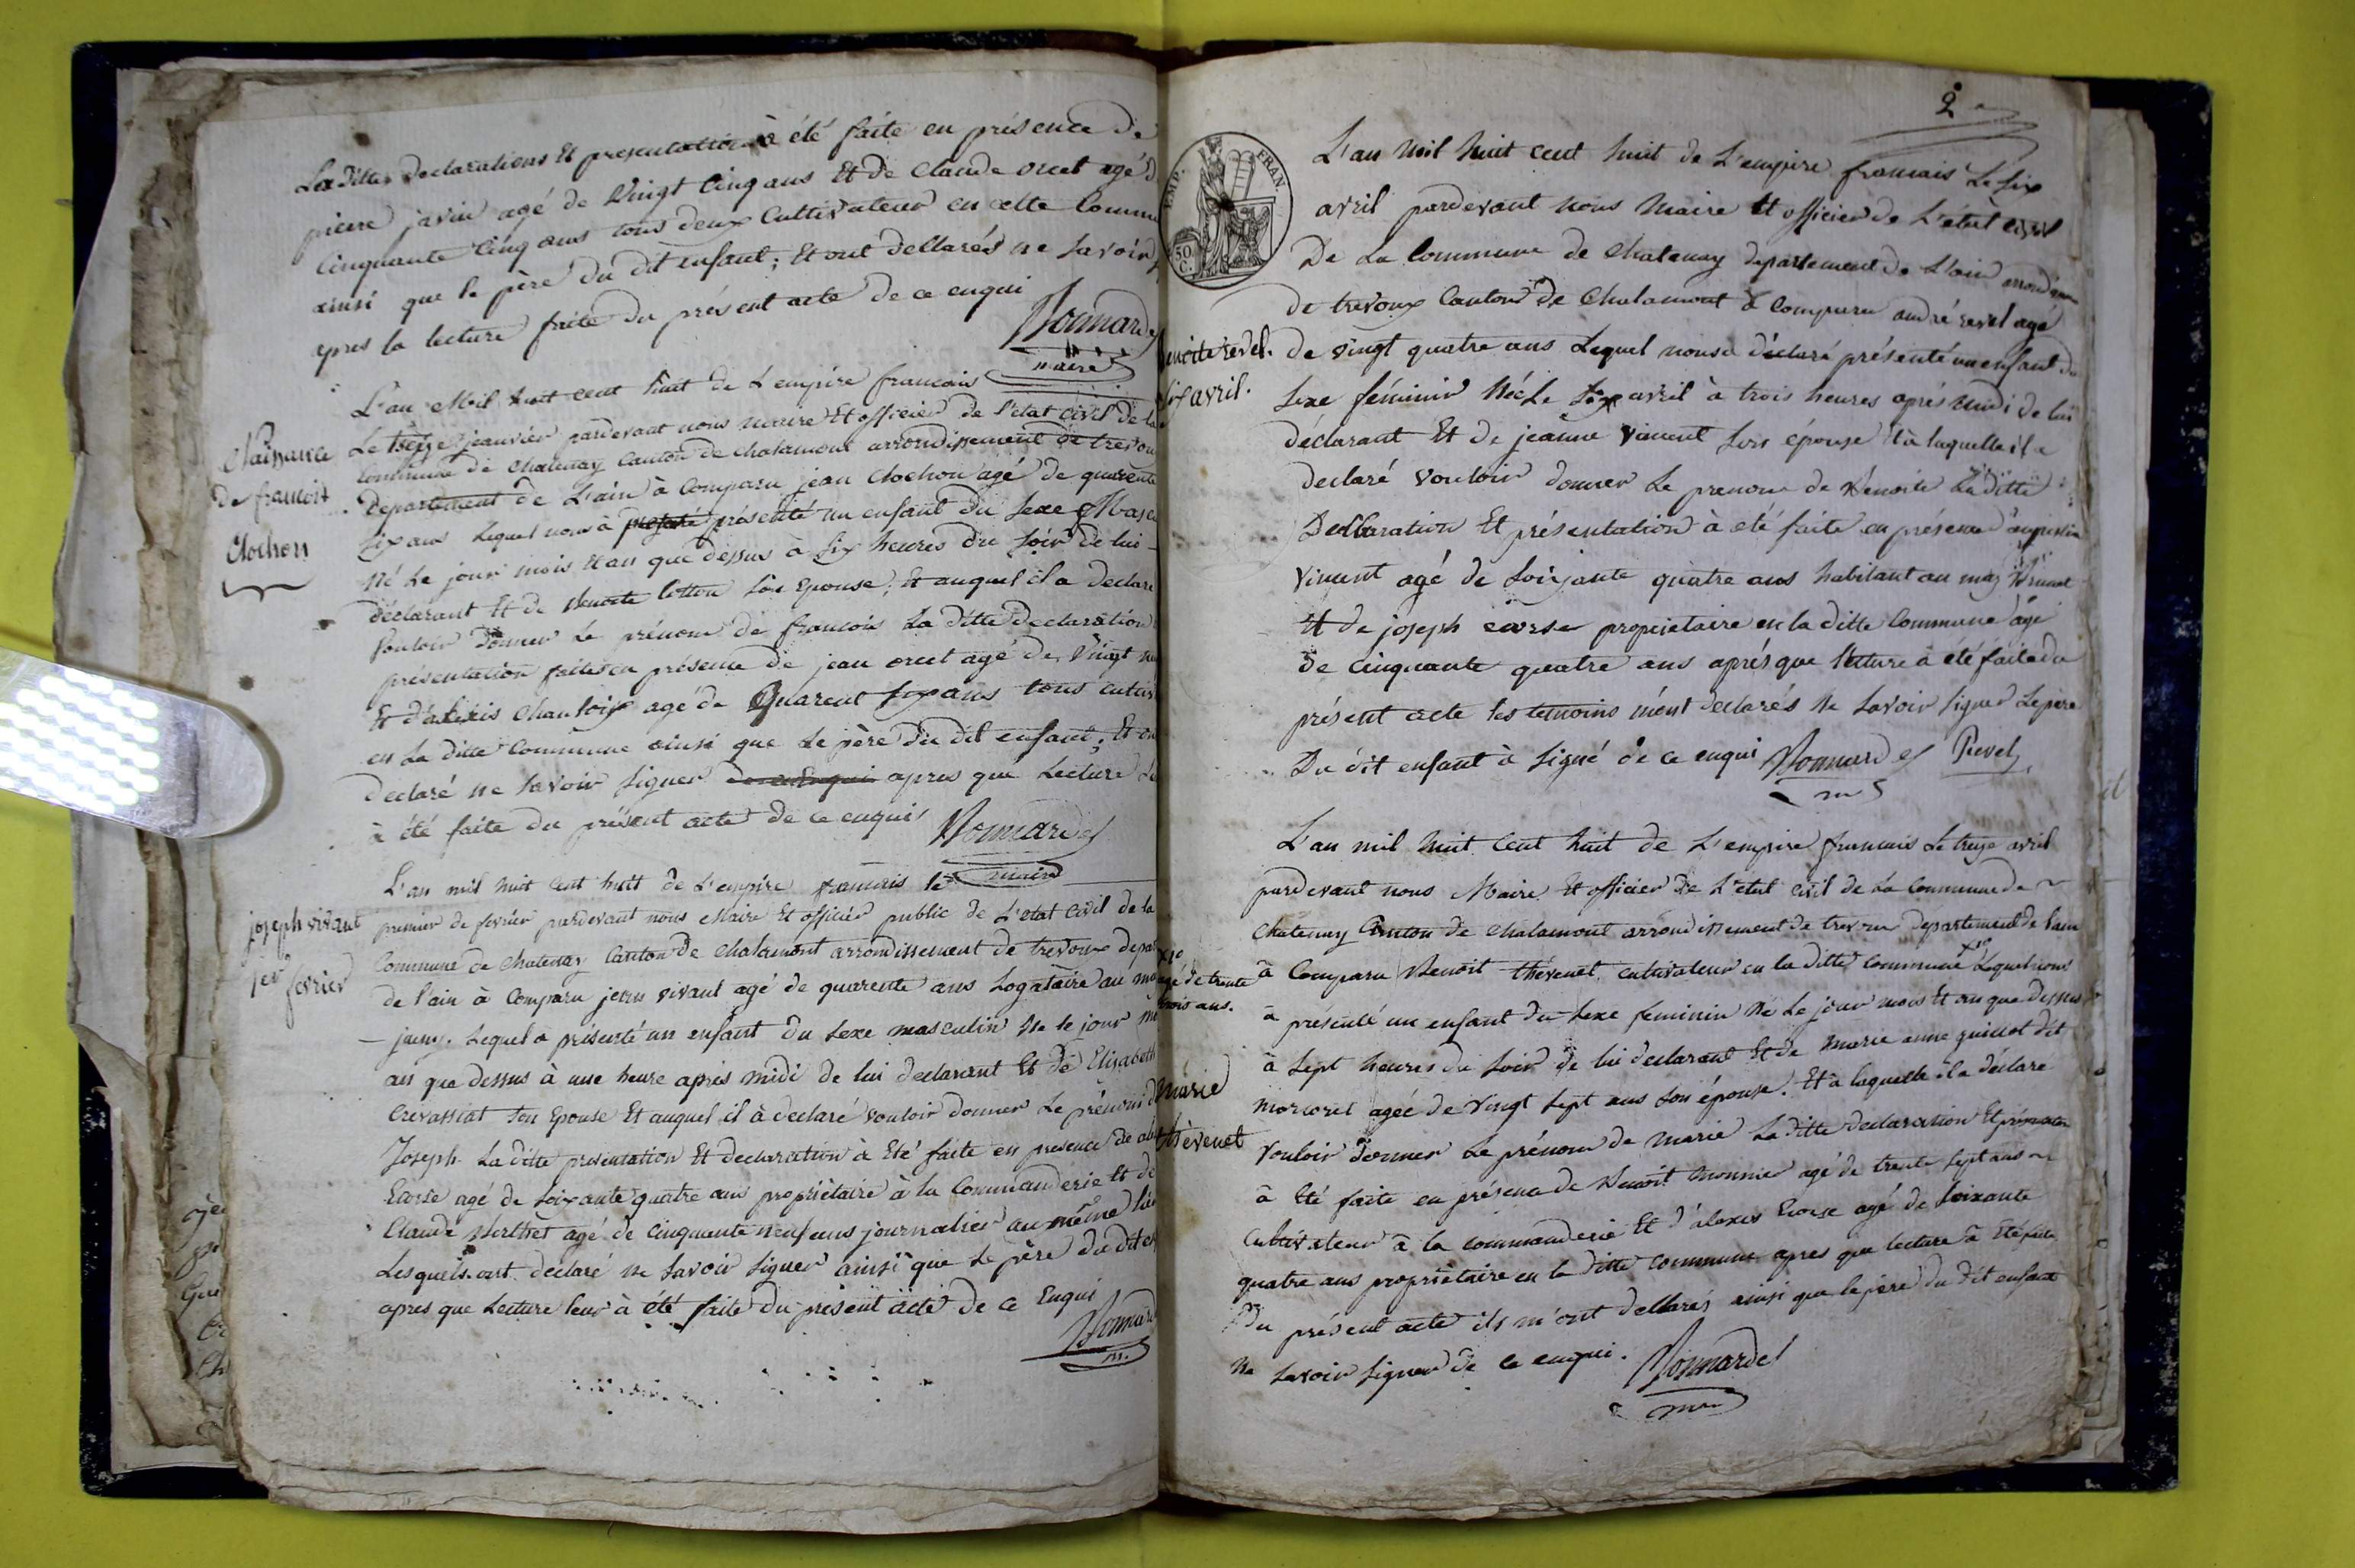 La ditte declarations Et presentation à été faite en présence de
pierre javin agé de Vingt Cinq ans Et de Claude orcet agé d
Cinquante Cinq ans tous deux Cultivateur en cette Commu
ainsi que le père du dit enfant; Et ont dellarés ne savoir
apres la lecture faite du présent acte de ce enqui
Nonnardel
maire
L'an Mil huit cent huit de L'empire francais
Naissance
de francoit
Clochon
Le treize jeanvier pardevant nous maire Et officier de l'état civil de la
Commune de chatenay Canton de chalamont arrondissement de trevou
Departement de L'ain à Comparu jean Clochon agé de quarente
six ans Lequel nous à présenté un enfant du sexe Masc
né Le jour mois et an que dessus à six heures du soir de lui
déclarant Et de Benoite Cotton son Epouse; Et auquel il a declare
vouloir donner Le prénom de francois La ditte declaration
présentation faites en présence de jean orcet agé de Vingt
Et d'alexis chanloix agé de Quarent six ans tous cultiv
en La ditte Commune ainsi que Le père du dit enfant; Et on
declaré ne savoir signer apres que Lecture
à été faite du présent acte de ce enqui
Nonnardel
maire
joseph vivant
1er fevrier
L'an mil huit cent huit de L'empire francais le
premier de fevrier pardevant nous Maire Et officier public de L'etat Civil de la
Commune de chatenay Canton de chalamont arrondissement de trevoux depar
de l'ain à Comparu jean vivant agé de quarente ans Logataire au ma
jueny. Lequel a présenté un enfant du sexe masculin Ne le jour m
an que dessus à une heure après midi de lui declarant Et de Elisabeth
Crevassiat son Epouse Et auquel il à declaré vouloir donner Le prénom d
Joseph La ditte presentation Et declaration à Eté faite en presence de al
Ecorse agé de soixante quatre ans propriètaire à la Commanderie Et de
Claude Berthet agé de cinquante neuf ans journalier au même lie
Lesquels ont declaré ne savoir signer ainsi que Le père du dit e
apres que Lecture leur à été faite du présent acte de ce Enqui
Nonnard
m.
2
EMP. FRAN.
50 C.
L'an Mil huit cent huit de L'empire francais Le six
avril pardevant nous Maire Et officier de L'état civil
De La Commune de chatenay departement de L'ain arrondi
de trevoux Canton de Chalamont à Comparu andré revel agé
enoite revel.
six avril.
de vingt quatre ans Lequel nous a déclaré présenté un enfant du
sexe féminin Née Le six avril à trois heures après Midi de lui
déclarant Et de jeanne vincent son épouse Et à laquelle il a
declaré vouloir donner Le prenom de Benoite La ditte
Dellaration Et présentation à eté faite en présence
vincent agé de soixante quatre ans habitant au maz Brunet
Et de joseph corse propriétaire en la ditte Commune agé
de Cinquante quatre ans après que lecture à été faite du
présent acte les temoins m'ont declarés Ne savoir signer Le père
Du dit enfant à signé de ce enqui Nonnardel Revel
m
L'an mil huit cent huit de L'empire francais Le treize avril
pardevant nous Maire Et officier de L'etat civil de La Commune de
chatenay Canton de Chalamont arrondissement de trevoux departement de l'ain
à Comparu Benoit thévenet cultivateur en la ditte commune Lequel nous
agé de trente
trois ans.
à présenté un enfant du sexe feminin Né Le jour mois Et an que dessus
à sept heures du soir de lui declarant Et de marie anne guillot dit
morsoret agée de vingt sept ans son épouse. Et à laquelle il a déclare
marie
thévenet
vouloir donner Le prénom de marie La ditte declaration Et présentation
à Eté faite en présence de Benoit monnier agé de trente sept ans
Cultivateur à la commanderie Et d'alexis Ecorse agé de soixante
quatre ans propriètaire en la ditte commune apres que lecture à Eté faite
Du présent acte ils m'ont dellarés ainsi que le père du dit enfant
Ne savoir signer de ce enqui. Nonnardel